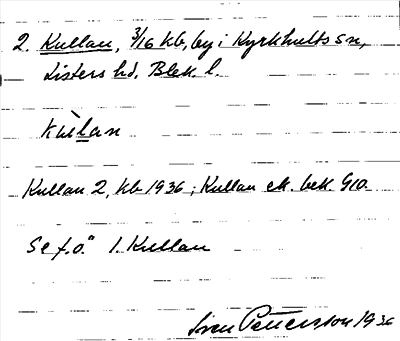 2. Kullan, 3/16 kb, by i Kyrkhults sn,
Listers hd, Blek. l.
kùlan
Kullan 2, kb 1936; Kullan ek. bek. G10.
Se f. ö. 1. Kullan
Sven Pettersson 1936